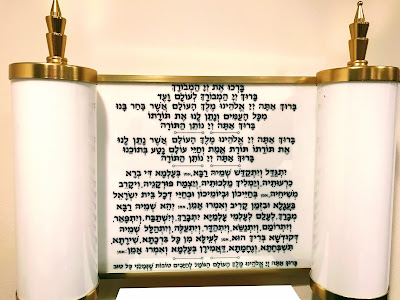 בָּרְכוּ אֶת יְיָ הַמְבוֹרָךְ
בָּרוּךְ יְיָ הַמְבוֹרָךְ לְעוֹלָם וָעֶד
בָּרוּךְ אַתָּה יְיָ אֱלֹהֵינוּ מֶלֶךְ הָעוֹלָם אֲשֶׁר בָּחַר בָּנוּ
מִכָּל הָעַמִּים וְנָתַן לָנוּ אֶת תּוֹרָתוֹ
בָּרוּךְ אַתָּה יְיָ נוֹתֵן הַתּוֹרָה
בָּרוּךְ אַתָּה יְיָ אֱלֹהֵינוּ מֶלֶךְ הָעוֹלָם אֲשֶׁר נָתַן לָנוּ
אֶת תּוֹרָתוֹ תּוֹרַת אֱמֶת וְחַיֵּי עוֹלָם נָטַע בְּתוֹכֵנוּ
בָּרוּךְ אַתָּה יְיָ נוֹתֵן הַתּוֹרָה
יִתְגַּדַּל וְיִתְקַדַּשׁ שְׁמֵיהּ רַבָּא, בְּעָלְמָא דִּי בְרָא
כִרְעוּתֵיהּ, וְיַמְלִיךְ מַלְכוּתֵיהּ, וְיַצְמַח פּוּרְקָנֵיהּ, וִיקָרֵב
מְשִׁיחֵיהּ, בְּחַיֵּיכוֹן וּבְיוֹמֵיכוֹן וּבְחַיֵּי דְכָל בֵּית יִשְׂרָאֵל
בַּעֲגָלָא וּבִזְמַן קָרִיב וְאִמְרוּ אָמֵן, יְהֵא שְׁמֵיהּ רַבָּא
מְבָרַךְ, לְעָלַם לְעָלְמֵי עָלְמַיָּא יִתְבָּרַךְ, וְיִשְׁתַּבַּח, וְיִתְפָּאֵר,
וְיִתְרוֹמֵם, וְיִתְנַשֵּׂא, וְיִתְהַדָּר, וְיִתְעַלֶּה, וְיִתְהַלָּל שְׁמֵיהּ
דְּקוּדְשָׁא בְּרִיךְ הוּא, לְעֵילָּא מִן כָּל בִּרְכָתָא, שִׁירָתָא,
תֻּשְׁבְּחָתָא, וְנֶחָמָתָא, דַּאֲמִירָן בְּעָלְמָא וְאִמְרוּ אָמֵן,
בָּרוּךְ אַתָּה יְיָ אֱלֹהֵינוּ מֶלֶךְ הָעוֹלָם הַגּוֹמֵל לְחַיָּבִים טוֹבוֹת שֶׁגְּמָלַנִי כָּל טוֹב